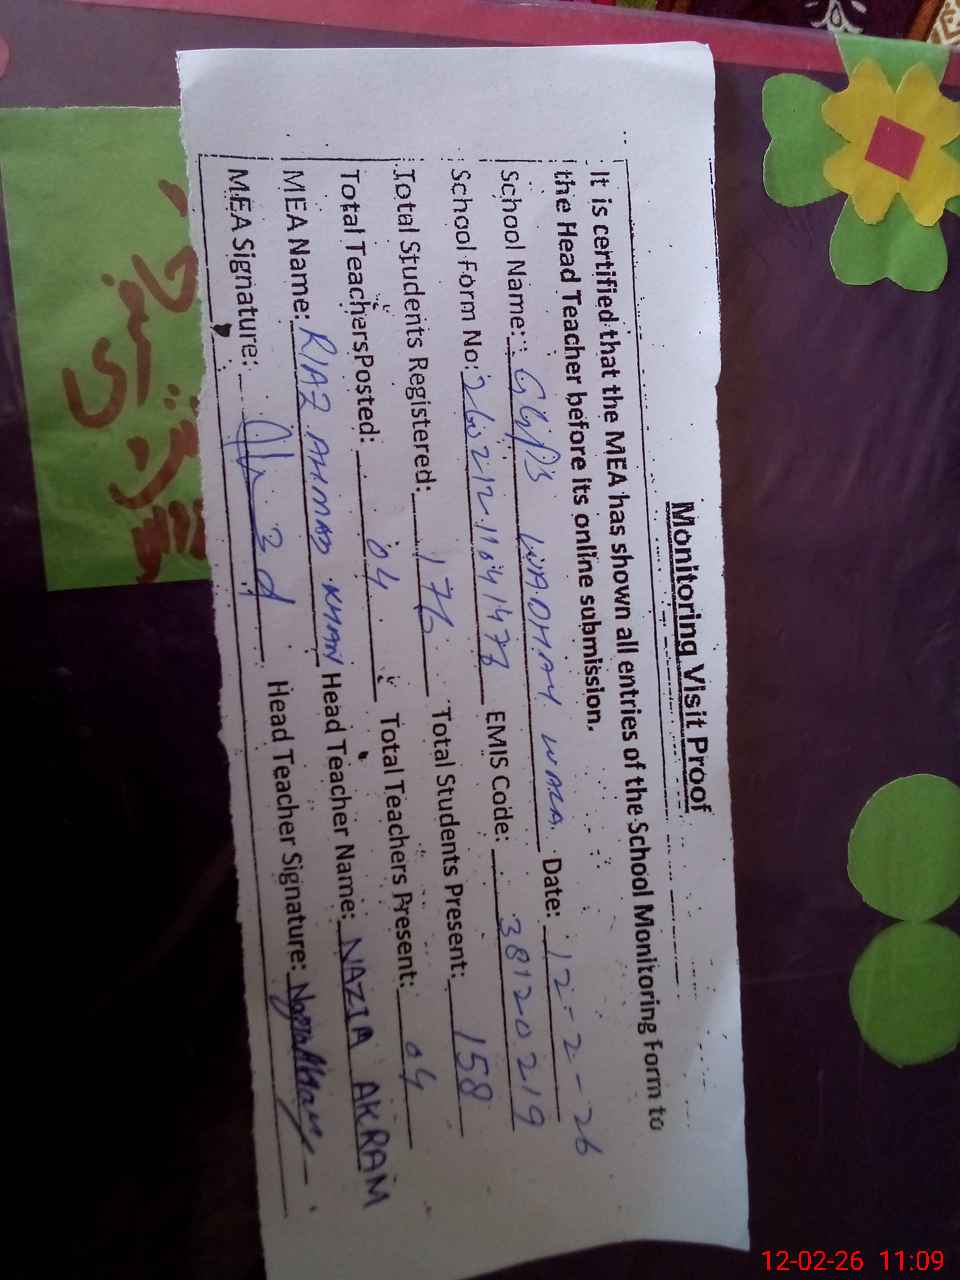 Monitoring Visit Proof
It is certified that the MEA has shown all entries of the School Monitoring Form to
the Head Teacher before its online submission.
School Name: GGPS WADHAY WALA Date: 12-2-26
School Form No: EMIS Code: 38120219
Total Students Registered: 176 Total Students Present: 158
Total TeachersPosted: 04 Total Teachers Present: 04
MEA Name: RIAZ AHMAD KHAN Head Teacher Name: NAZIA AKRAM
MEA Signature: Head Teacher Signature:
12-02-26 11:09